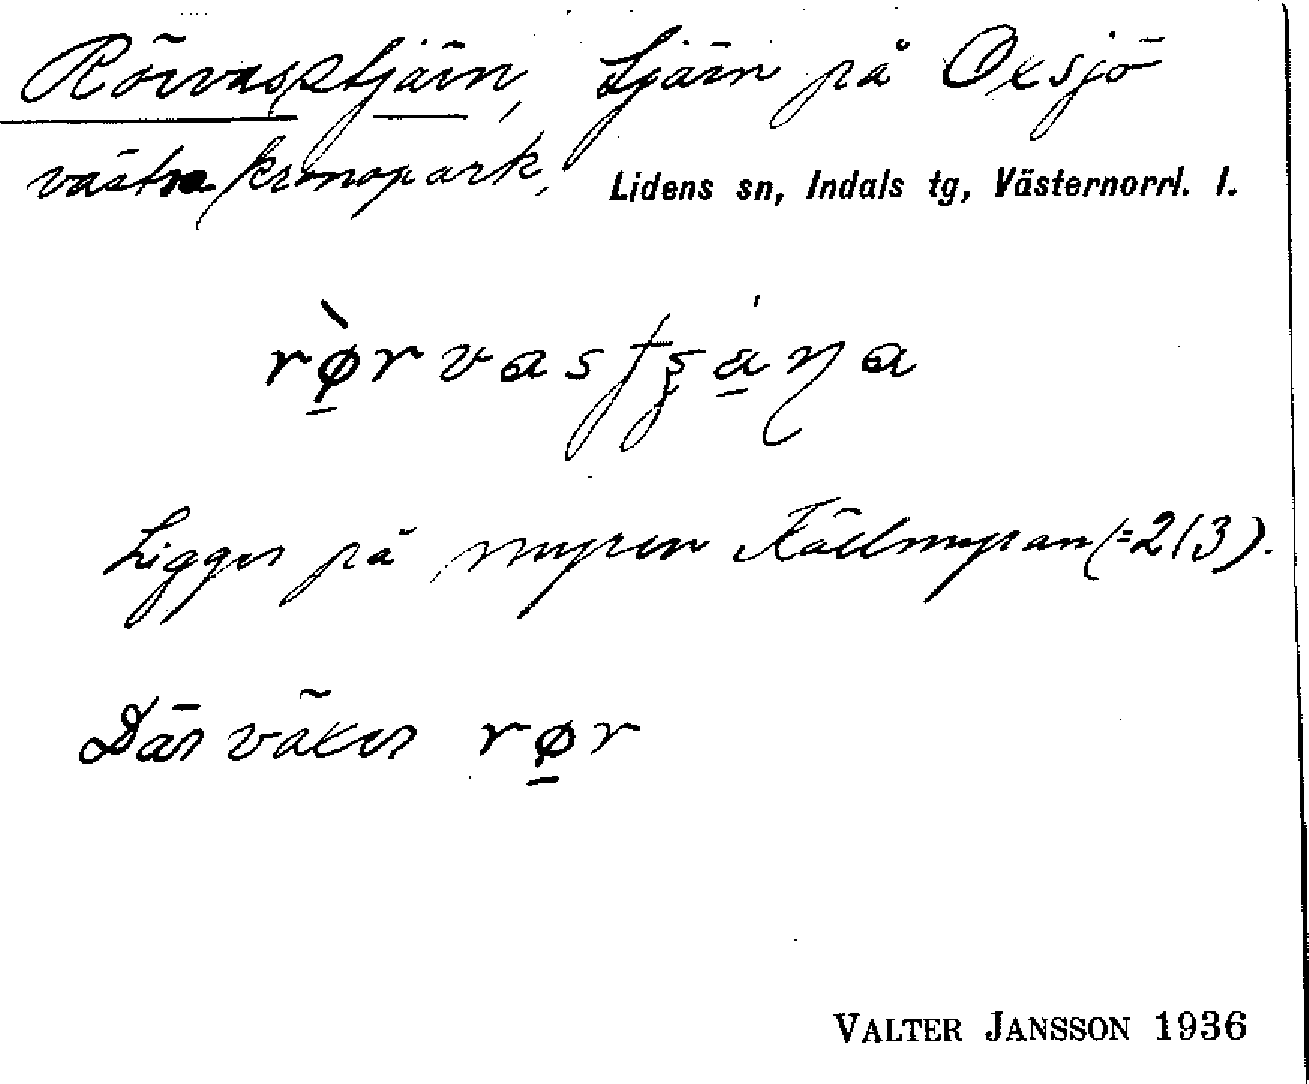 Rörvasstjärn, tjärn på Oxsjö
västra kronopark, Lidens sn, Indals tg, Västernorrl. l.
rø̱̀rvas
Ligger på myren Källmyran (=213).
Där växer rø̱r
VALTER JANSSON 1936